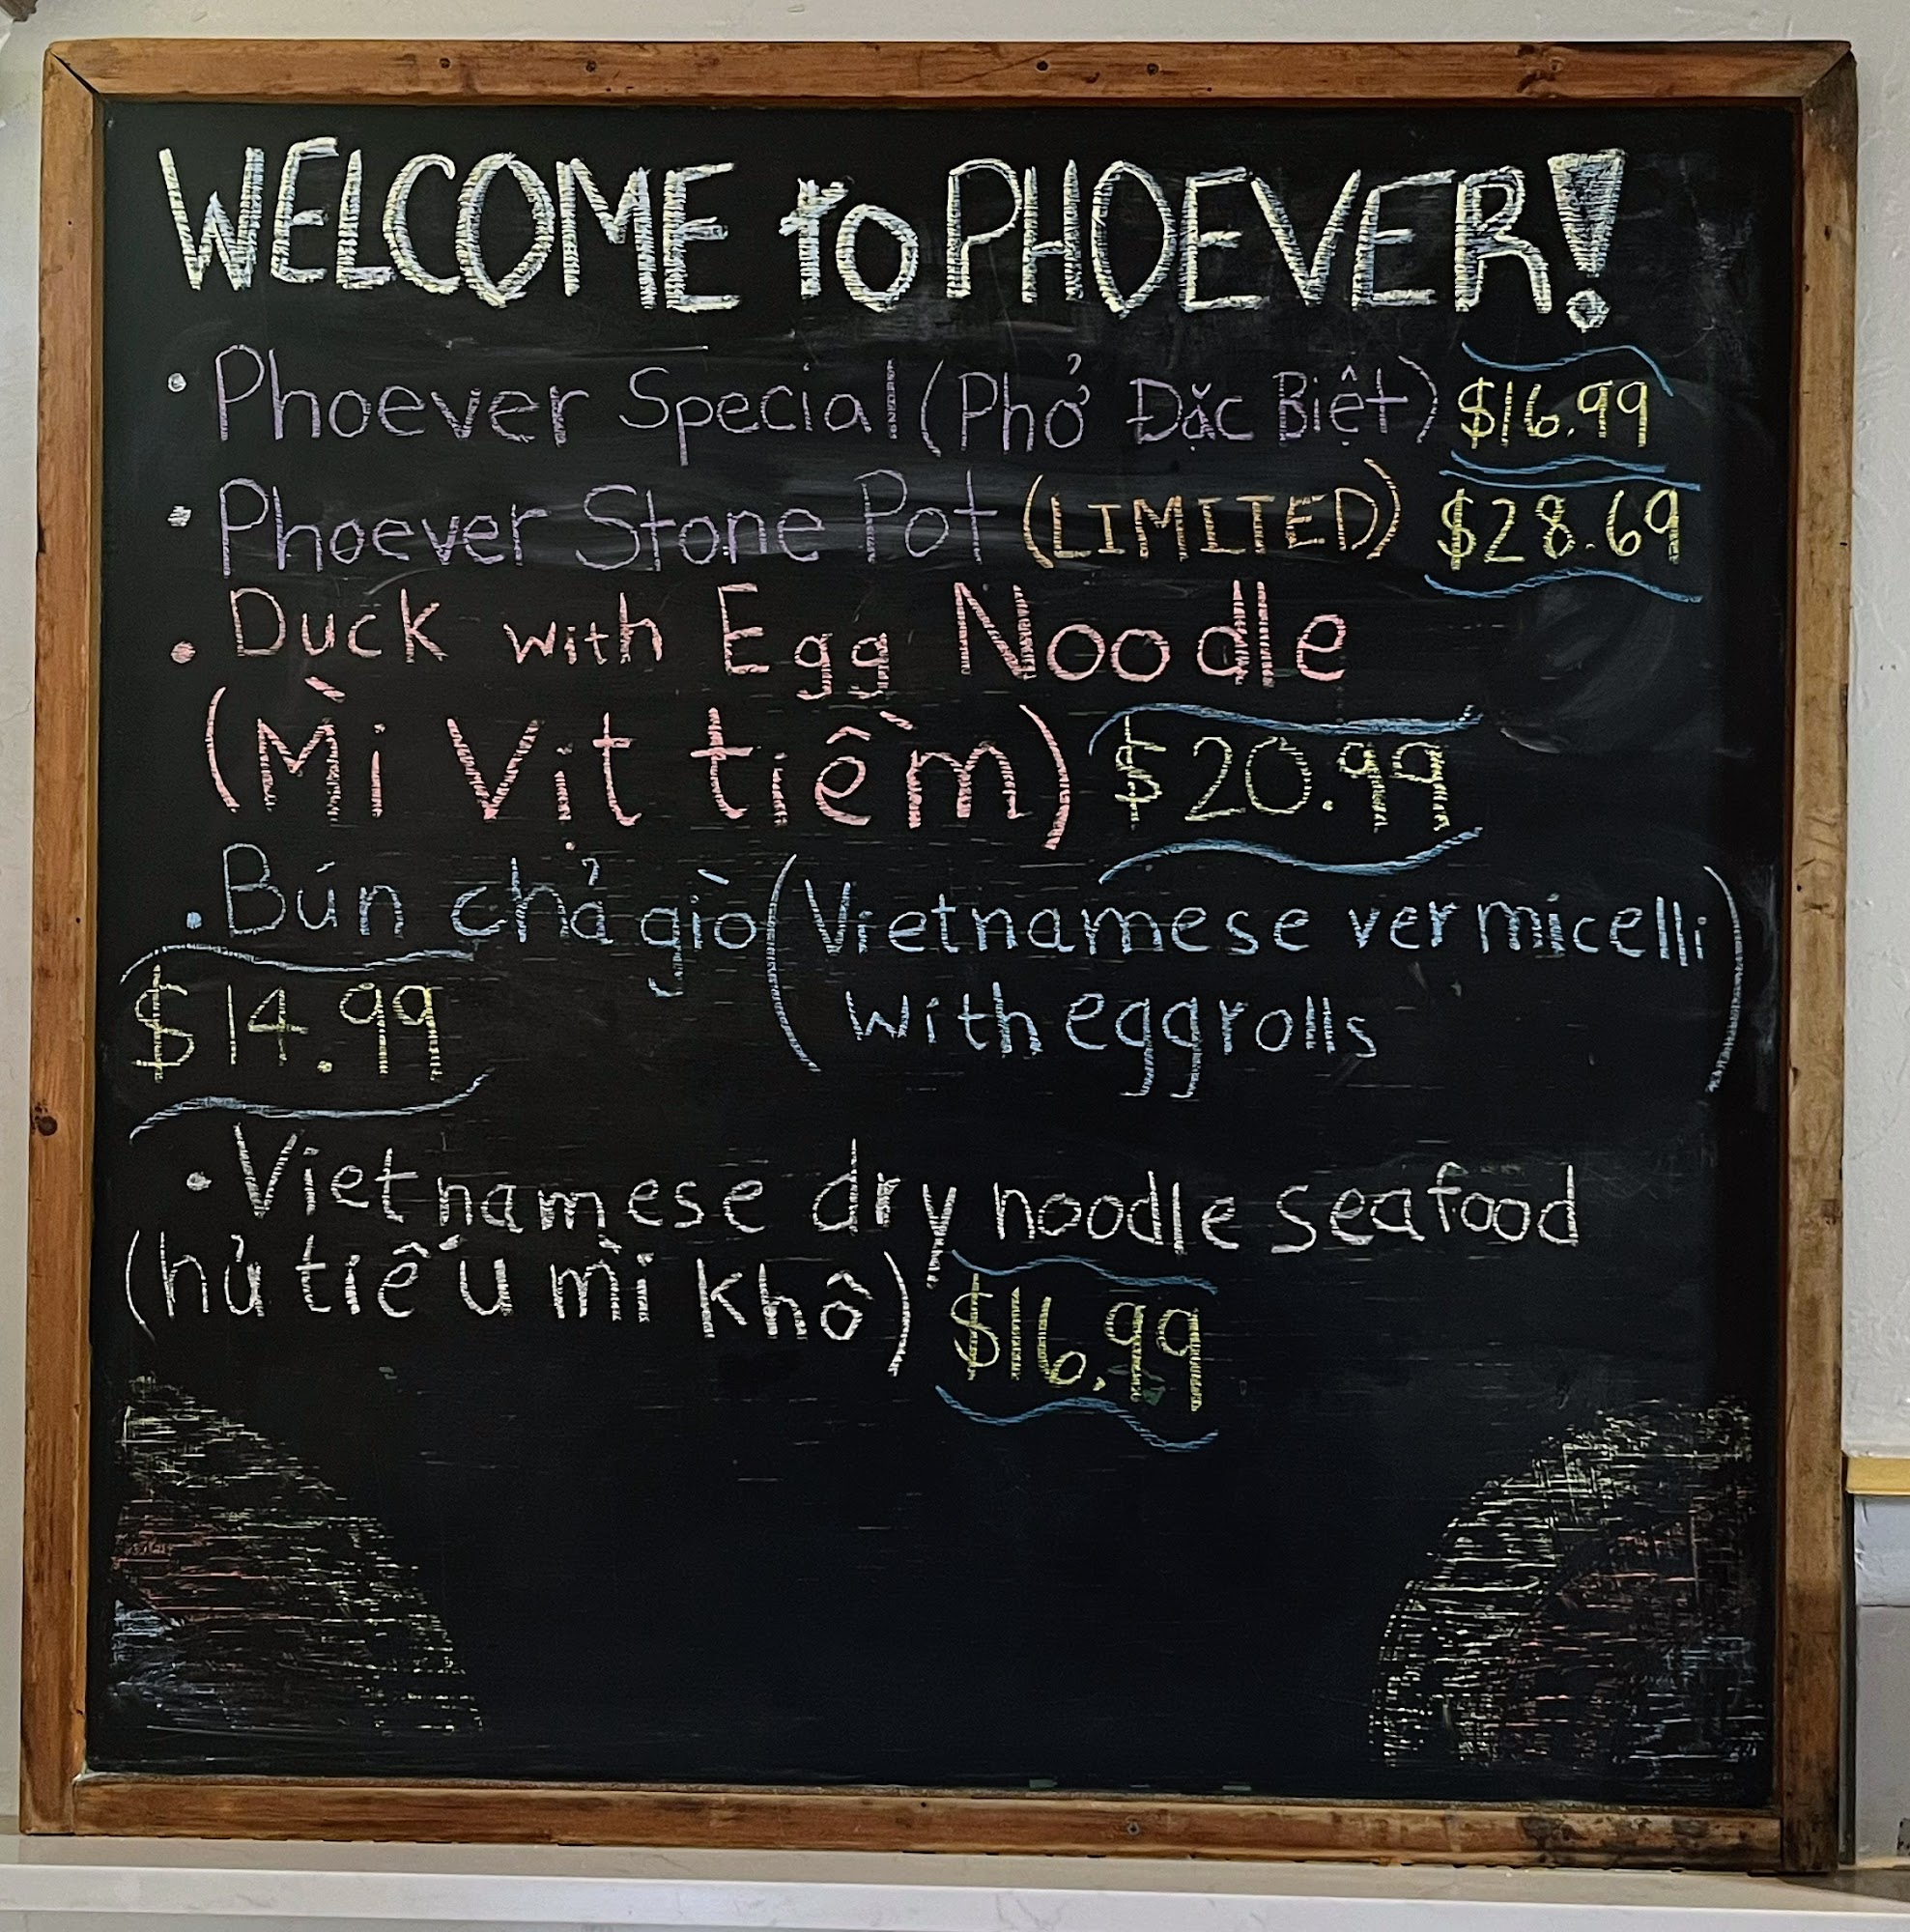 WELCOME to PHOEVER!
• Phoever Special (Phở Đặc Biệt) $16.99
• Phoever Stone Pot (LIMITED) $28.69
• Duck with Egg Noodle
(Mì Vịt tiềm) $20.99
• Bún chả giò (Vietnamese vermicelli
with eggrolls)
$14.99
• Vietnamese dry noodle seafood
(hủ tiếu mì khô) $16.99